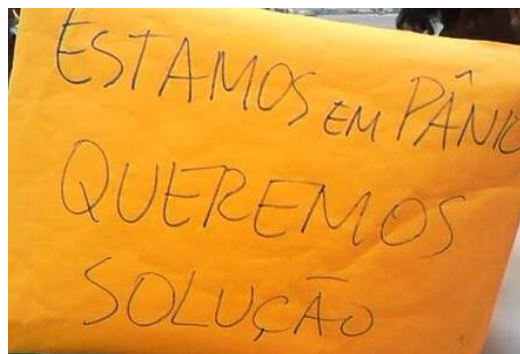 ESTAMOS EM PÂNICO
QUEREMOS
SOLUÇÃO